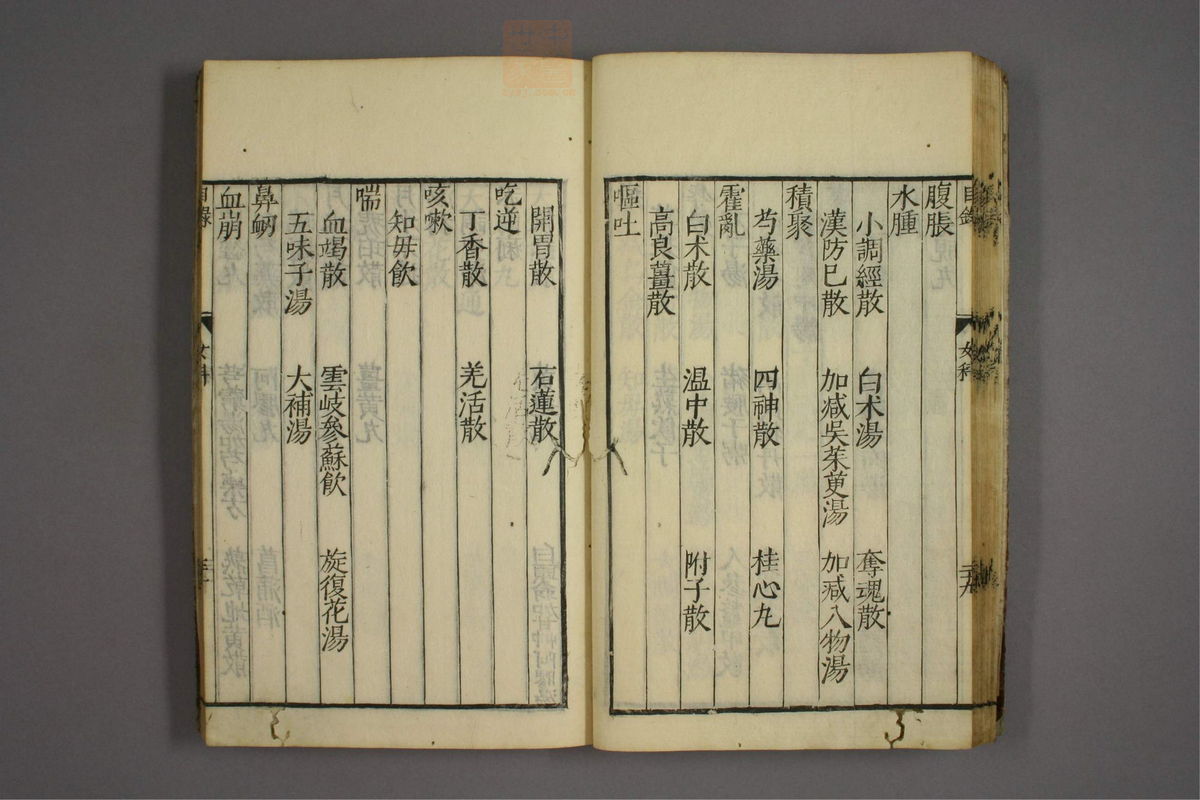 目錄
女科
腹脹
水腫
小調經散 白朮湯 奪魂散
漢防巳散 加减吳茱萸湯 加减八物湯
積聚
芍藥湯 四神散 桂心丸
霍亂
白朮散 温中散 附子散
高良薑散
嘔吐
開胃散 石蓮散
吃逆
丁香散 羌活散
咳嗽
知毋飲
喘
血竭散 雲岐參蘇飲 旋復花湯
五味子湯 大補湯
鼻衂
血崩
目錄
女科